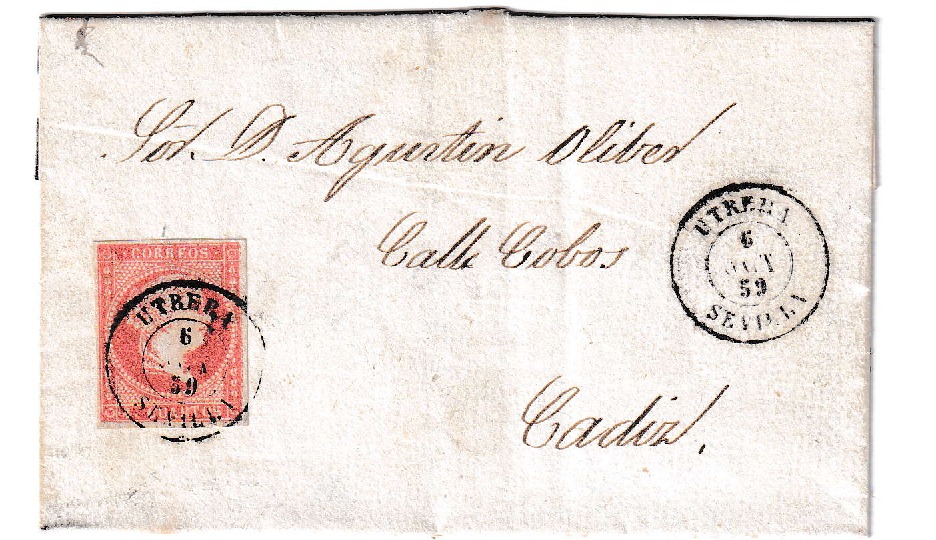 Sor. D. Agustin Oliber
Calle Cobos
Cadiz.
CORREOS
UTRERA
6
59
SEVILLA
UTRERA
6
59
SEVILLA